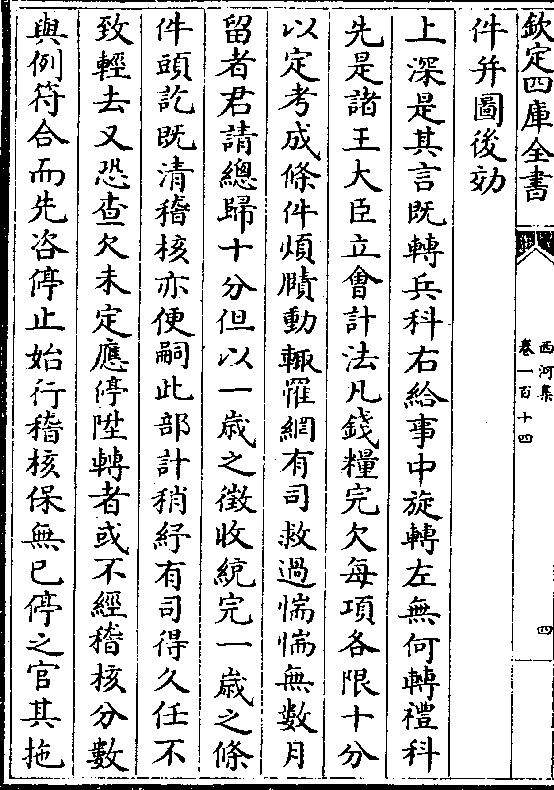 欽定四庫全書
西河集
卷一百十四
四
件幷圖後効
上深是其言既轉兵科右給事中旋轉左無何轉禮科
先是諸王大臣立會計法凡錢糧完欠每項各限十分
以定考成條件煩賾動輙罹網有司救過惴惴無數月
留者君請總歸十分但以一歲之徵收統完一歲之條
件頭訖既清稽核亦便嗣此部計稍紓有司得久任不
致輕去又恐查欠未定應停陞轉者或不經稽核分數
與例符合而先咨停止始行稽核保無已停之官其拖